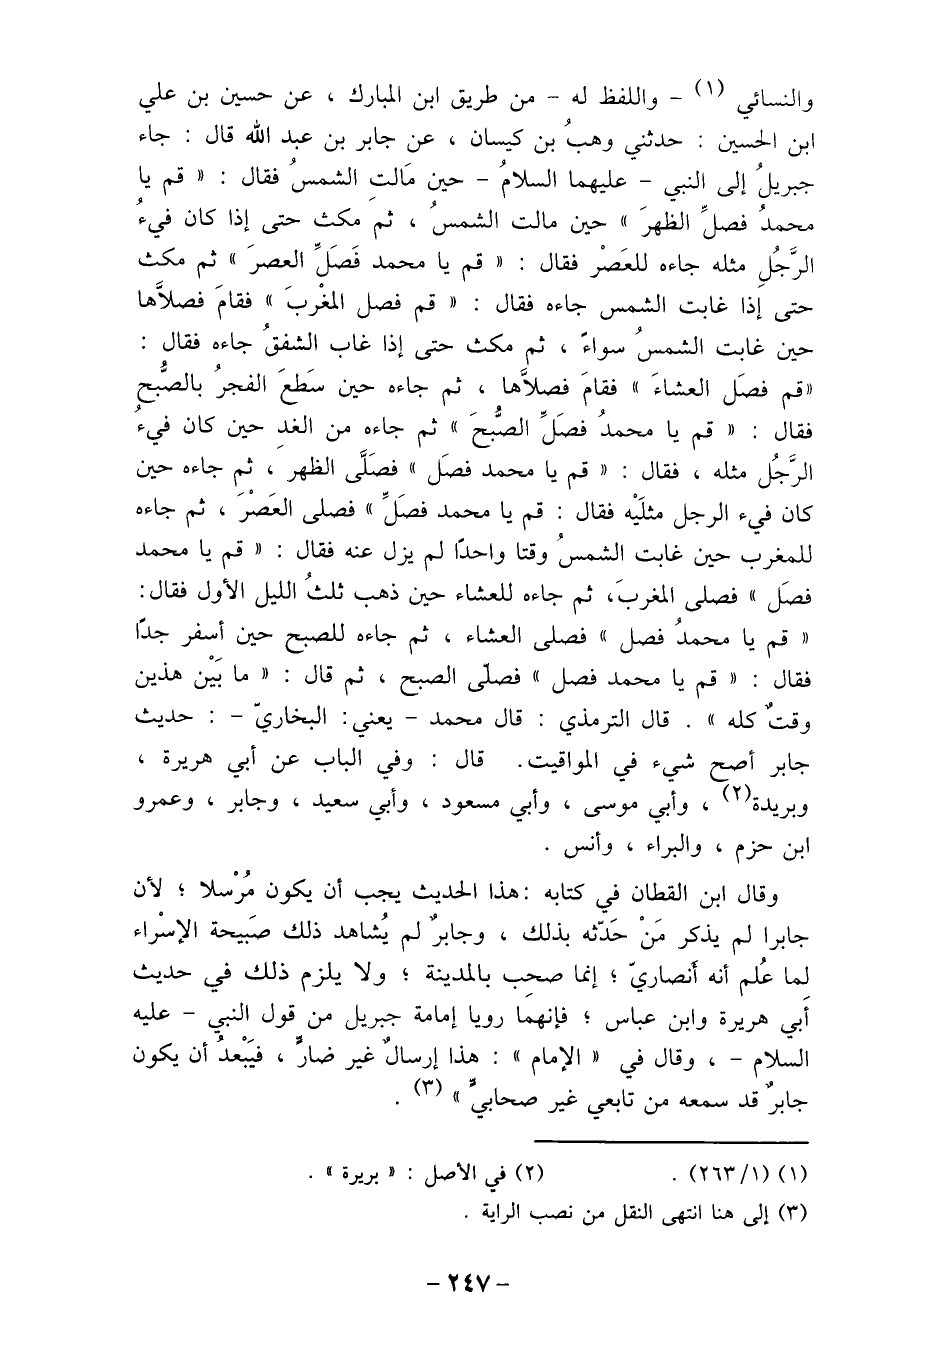 والنسائي (١) - واللفظ له - من طريق ابن المبارك ، عن حسين بن علي
ابن الحسين : حدثني وهبُ بن كيسان ، عن جابر بن عبد الله قال : جاء
جبريلُ إلى النبي - عليهما السلامُ - حين مَالتِ الشمسُ فقال : « قم يا
محمدُ فصلِّ الظهرَ » حين مالت الشمسُ ، ثم مكث حتى إذا كان فيءُ
الرَّجُلِ مثله جاءه للعَصْر فقال : « قم يا محمد فَصَلِّ العصرَ » ثم مكث
حتى إذا غابت الشمس جاءه فقال : « قم فصل المغْربَ » فقامَ فصلاَّها
حين غابت الشمسُ سواءً ، ثم مكث حتى إذا غاب الشفقُ جاءه فقال :
«قم فصَل العشاءَ » فقامَ فصلاَّها ، ثم جاءه حين سَطَعَ الفجرُ بالصُّبح
فقال : « قم يا محمدُ فصَلِّ الصُّبحَ » ثم جاءه من الغدِ حين كان فيءُ
الرَّجُل مثله ، فقال : « قم يا محمد فصَل » فصَلَّى الظهر ، ثم جاءه حين
كان فيء الرجل مثلَيْه فقال : قم يا محمد فصَلِّ » فصلى العَصْرَ ، ثم جاءه
للمغرب حين غابت الشمسُ وقتا واحدًا لم يزل عنه فقال : « قم يا محمد
فصَل » فصلى المغربَ، ثم جاءه للعشاء حين ذهب ثلثُ الليل الأول فقال:
« قم يا محمدُ فصل » فصلى العشاء ، ثم جاءه للصبح حين أسفر جدًا
فقال : « قم يا محمد فصل » فصلّى الصبح ، ثم قال : « ما بَيْن هذين
وقتٌ كله » . قال الترمذي : قال محمد - يعني: البخاريّ - : حديث
جابر أصح شيء في المواقيت. قال : وفي الباب عن أبي هريرة ،
وبريدة(٢) ، وأبي موسى ، وأبي مسعود ، وأبي سعيد ، وجابر ، وعمرو
ابن حزم ، والبراء ، وأنس .
وقال ابن القطان في كتابه :هذا الحديث يجب أن يكون مُرْسلا ؛ لأن
جابرا لم يذكر مَنْ حَدّثه بذلك ، وجابرٌ لم يُشاهد ذلك صَبيحة الإسْراء
لما عُلم أنه أنصاريّ ؛ إنما صحِب بالمدينة ؛ ولا يلزم ذلك في حديث
أبي هريرة وابن عباس ؛ فإنهما رويا إمامة جبريل من قول النبي - عليه
السلام - ، وقال في « الإمام » : هذا إرسالٌ غير ضارٍّ ، فيَبْعدُ أن يكون
جابرٌ قد سمعه من تابعي غير صحابيٍّ » (٣) .
(١) (١/ ٢٦٣) . (٢) في الأصل : « بريرة » .
(٣) إلى هنا انتهى النقل من نصب الراية .
- ٢٤٧ -